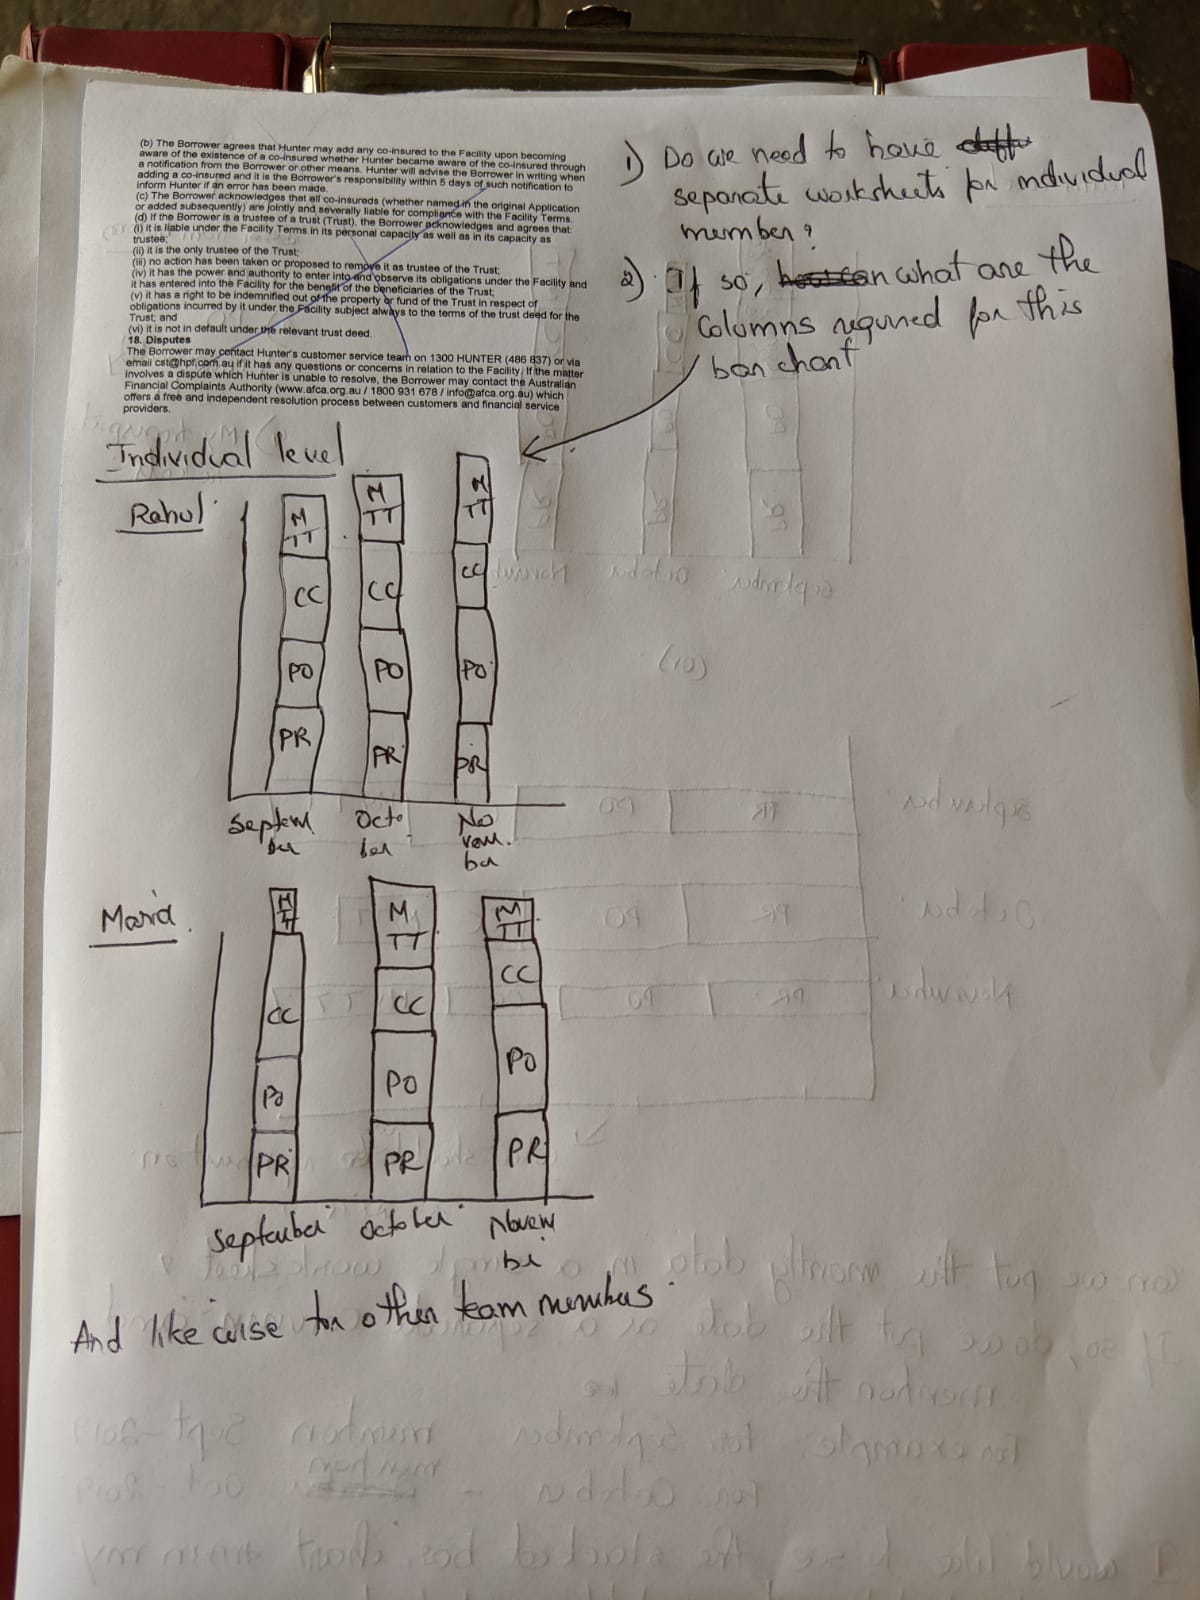 (b) The Borrower agrees that Hunter may add any co-insured to the Facility upon becoming
aware of the existence of a co-insured whether Hunter became aware of the co-insured through
a notification from the Borrower or other means. Hunter will advise the Borrower in writing when
adding a co-insured and it is the Borrower's responsibility within 5 days of such notification to
inform Hunter if an error has been made.
(c) The Borrower acknowledges that all co-insureds (whether named in the original Application
or added subsequently) are jointly and severally liable for compliance with the Facility Terms.
(d) If the Borrower is a trustee of a trust (Trust), the Borrower acknowledges and agrees that:
(i) it is liable under the Facility Terms in its personal capacity as well as in its capacity as
trustee;
(ii) it is the only trustee of the Trust;
(iii) no action has been taken or proposed to remove it as trustee of the Trust;
(iv) it has the power and authority to enter into and observe its obligations under the Facility and
it has entered into the Facility for the benefit of the beneficiaries of the Trust;
(v) it has a right to be indemnified out of the property or fund of the Trust in respect of
obligations incurred by it under the Facility subject always to the terms of the trust deed for the
Trust; and
(vi) it is not in default under the relevant trust deed.
18. Disputes
The Borrower may contact Hunter's customer service team on 1300 HUNTER (486 837) or via
email cst@hpf.com.au if it has any questions or concerns in relation to the Facility. If the matter
involves a dispute which Hunter is unable to resolve, the Borrower may contact the Australian
Financial Complaints Authority (www.afca.org.au / 1800 931 678 / info@afca.org.au) which
offers a free and independent resolution process between customers and financial service
providers.
1) Do we need to have
separate worksheets for individual
member?
2) If so, what are the
columns required for this
bar chart
Individual level
Rahul
M M M
TT TT TT
CC CC CC
PO PO PO
PR PR PR
Septem Octo No
ber ber vem.
ber
Maria
M M M
TT TT TT
CC CC CC
PO PO PO
PR PR PR
September October Novem
ber
And like wise for other team members